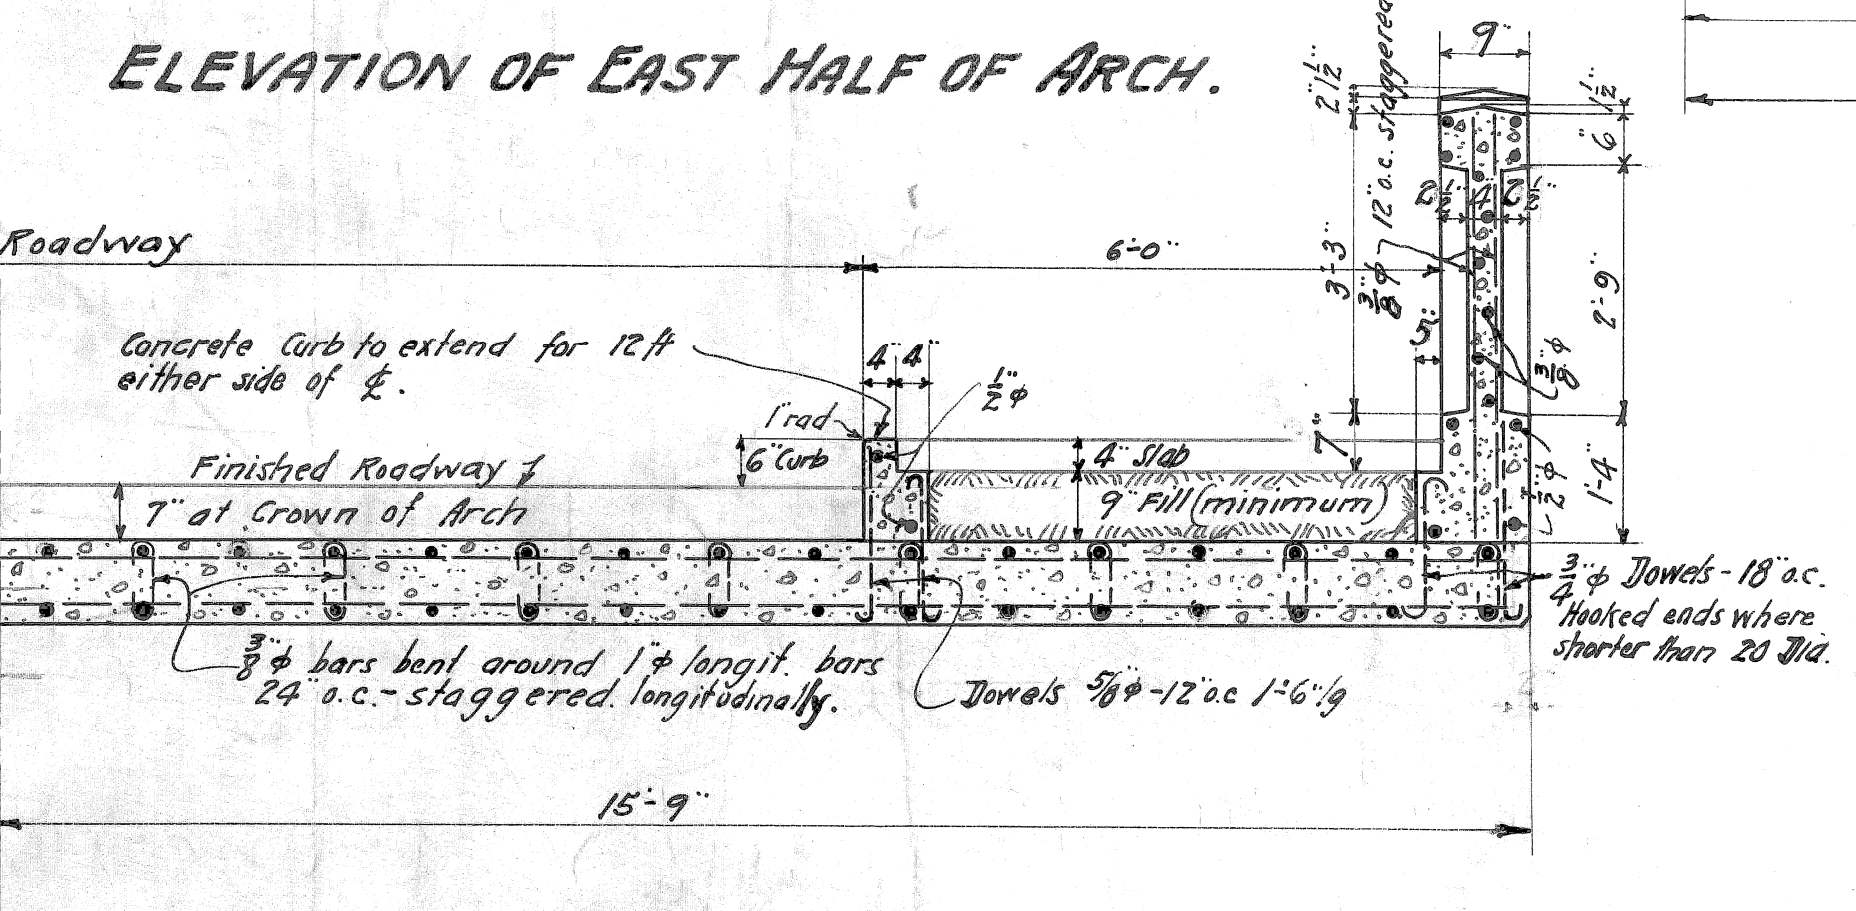 ELEVATION OF EAST HALF OF ARCH.
9"
2" 1/2"
3/8"φ 12" o.c. staggered
1/2"
6"
2 1/2" 4" 2 1/2"
Roadway
6'-0"
3'-3"
2'-9"
5"
Concrete Curb to extend for 12 ft
either side of ℄.
4" 4"
1/2"φ
3/8"φ
1" rad
6" Curb
4" Slab
7"
Finished Roadway
7" at Crown of Arch
9" Fill (minimum)
1/2"φ
1'-4"
3/4"φ Dowels - 18" o.c.
Hooked ends where
shorter than 20 Dia.
3/8"φ bars bent around 1"φ longit. bars
24" o.c. - staggered longitudinally.
Dowels 5/8"φ - 12" o.c 1'-6" lg
15'-9"